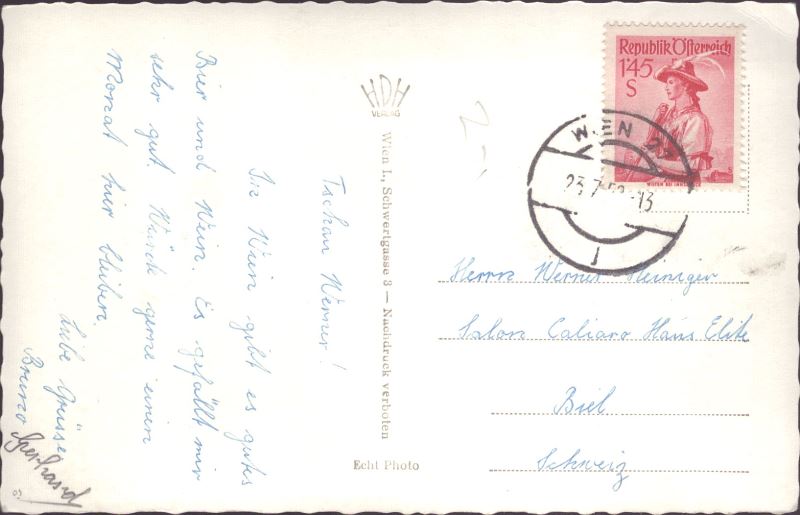 Tschau Werner!
In Wien gibt es gutes
Bier und Wein. Es gefällt mir
sehr gut. Würde gerne einen
Monat hier bleiben.
Liebe Grüsse
Bruno
HDH
VERLAG
Wien I., Schwertgasse 3 — Nachdruck verboten
Echt Photo
Republik Österreich
1'45
S
WIEN
23.7
13
1
Herrn Werner Heiniger
Salon Caliaro Haus Elite
Biel
Schweiz